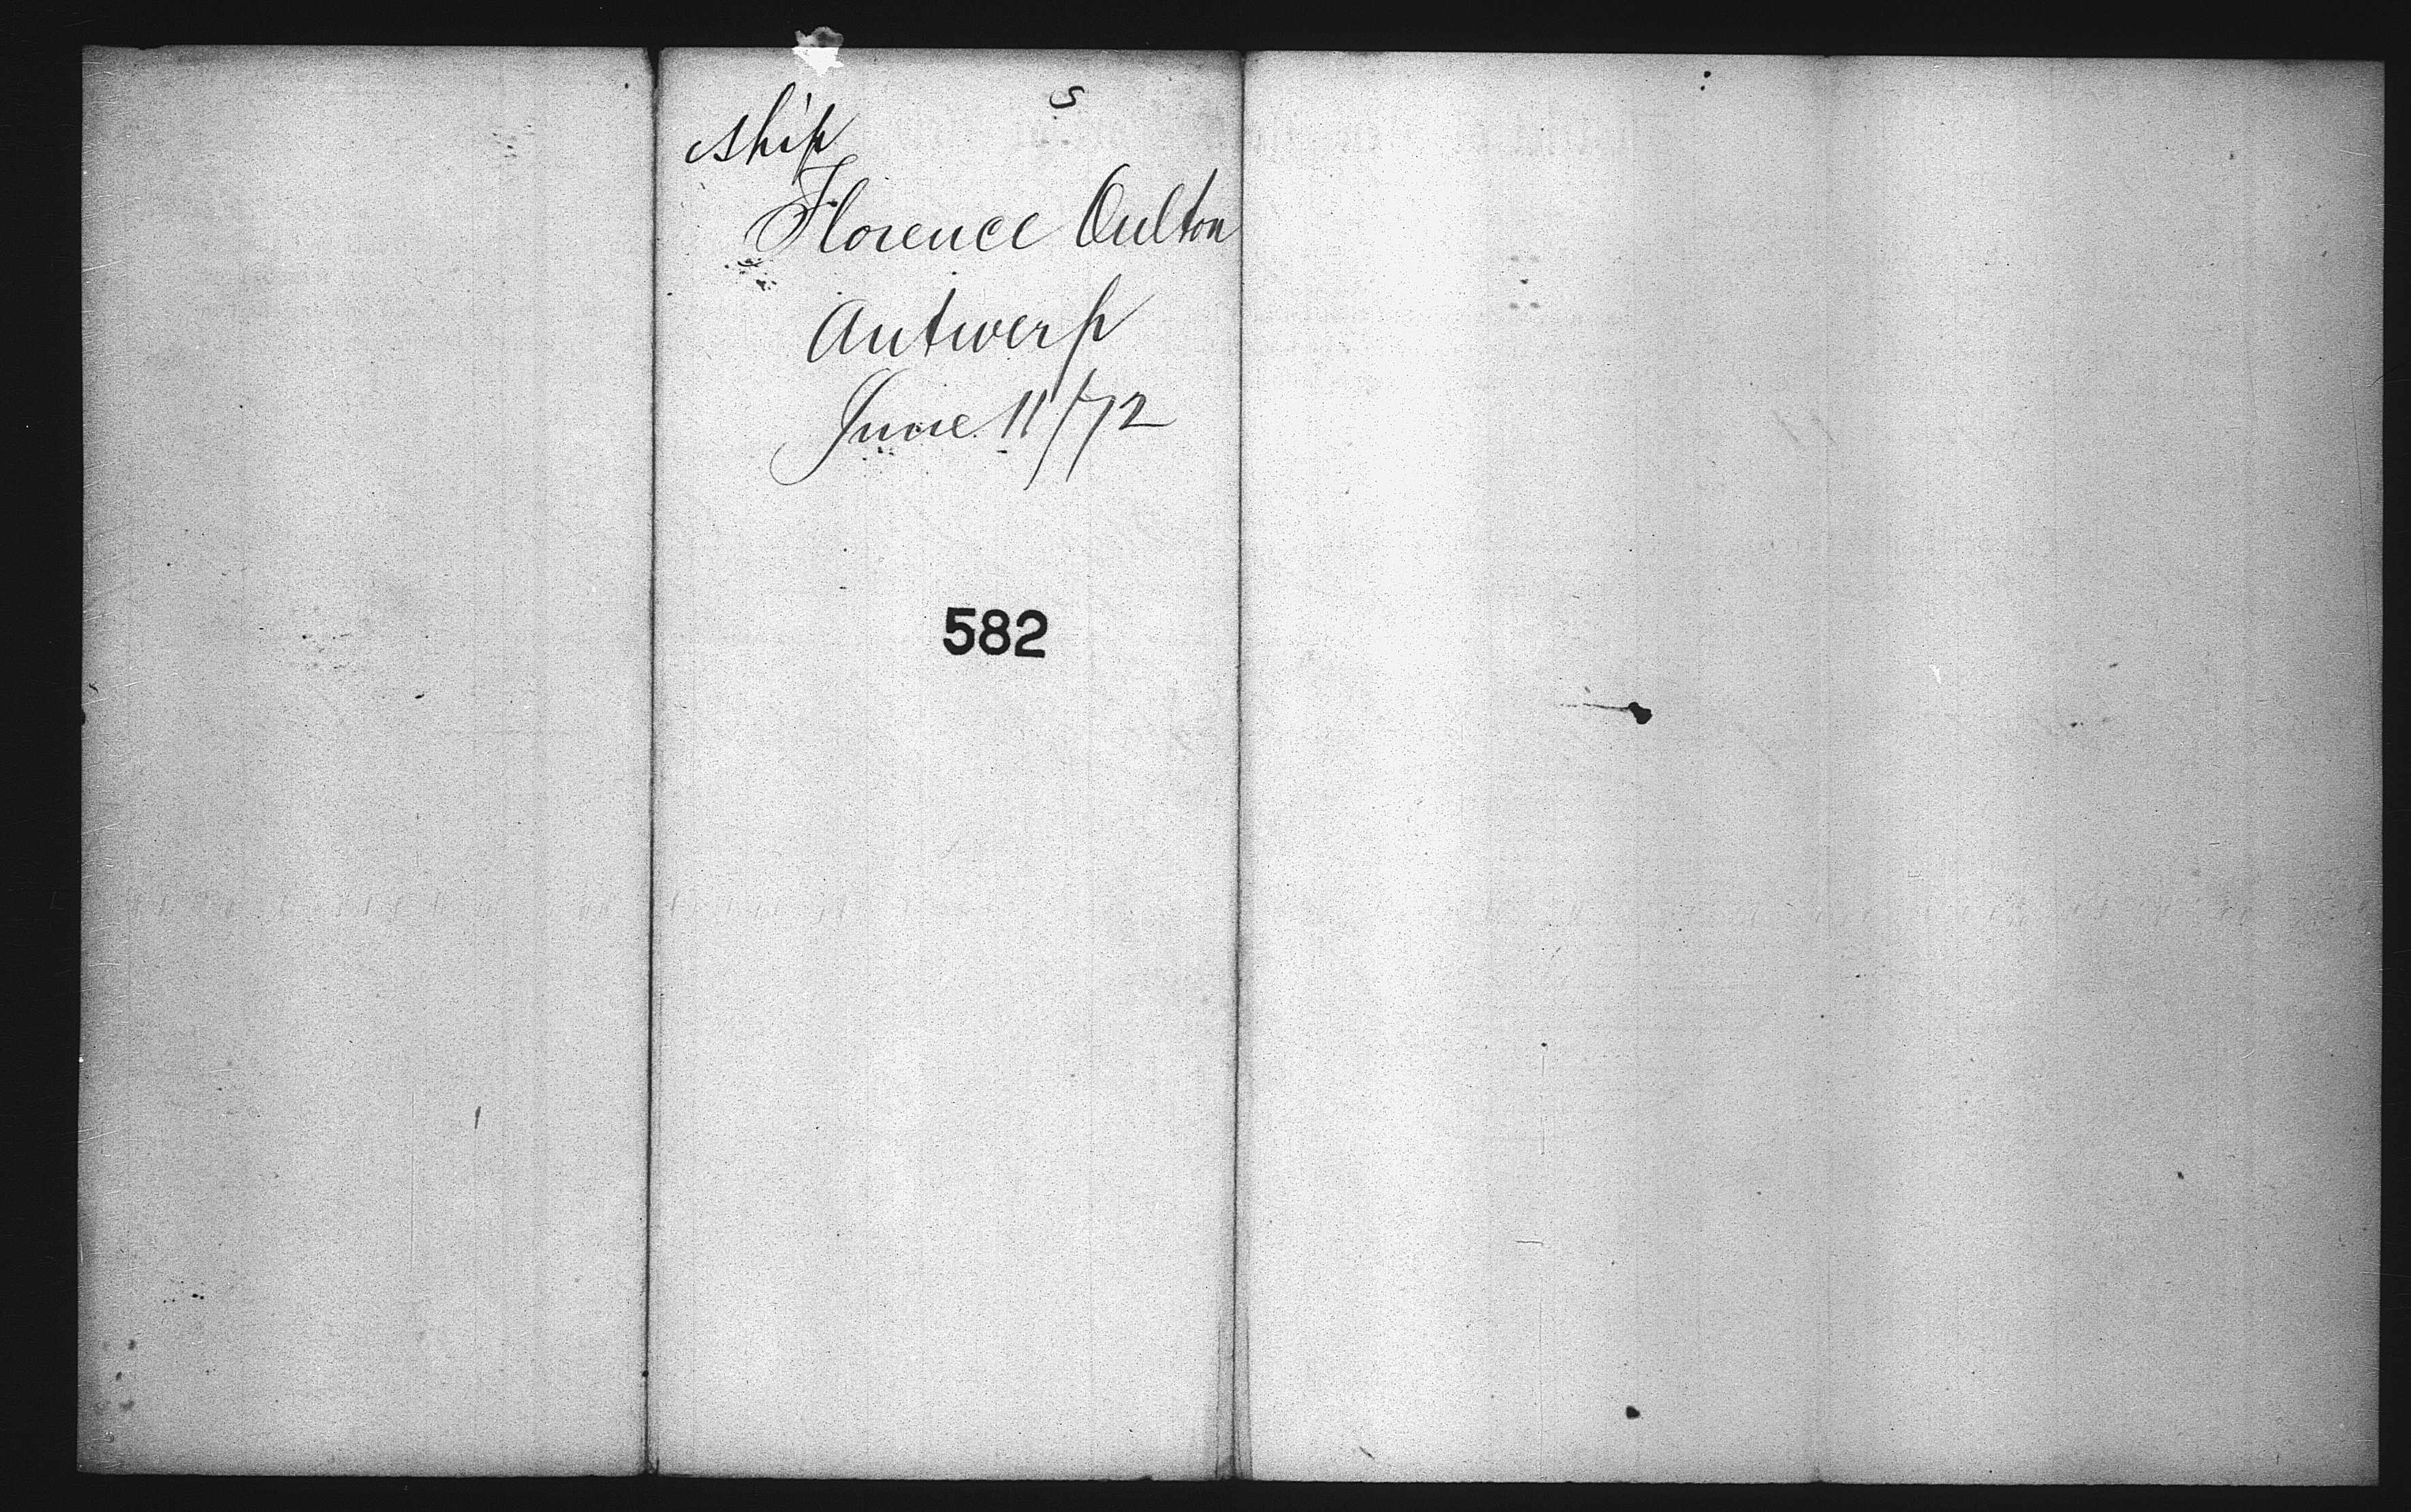 5
Ship
Florence Oulton
Antwerp
June 11/72
582